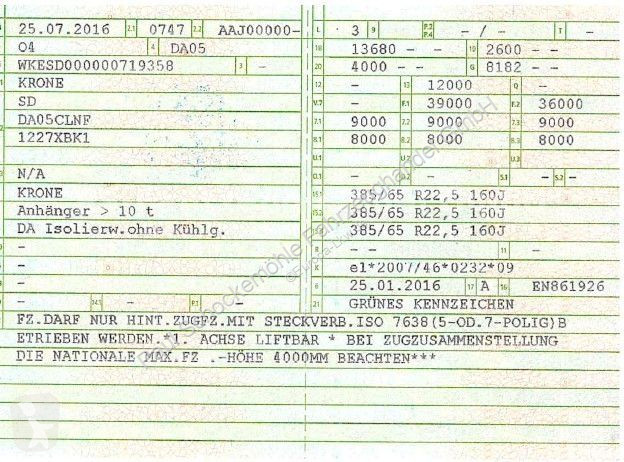 25.07.2016 2.1 0747 2.2 AAJ00000-
04 4 DA05
WKESD000000719358 3 -
KRONE
SD
DA05CLNF
1227XBK1
N/A
KRONE
Anhänger > 10 t
DA Isolierw.ohne Kühlg.
-
-
- 14.1 - P.1 -
L 3 9 - P.2 P.4 - / - T -
18 13680 - - 19 2600 - -
20 4000 - - G 8182 - -
12 - 13 12000 Q -
V.7 - F.1 39000 F.2 36000
7.1 9000 7.2 9000 7.3 9000
8.1 8000 8.2 8000 8.3 8000
U.1 U.2 U.3
O.1 - O.2 - S.1 - S.2 -
15.1 385/65 R22,5 160J
15.2 385/65 R22,5 160J
385/65 R22,5 160J
R - - 11 -
K e1*2007/46*0232*09
6 25.01.2016 17 A 16 EN861926
21 GRÜNES KENNZEICHEN
FZ.DARF NUR HINT.ZUGFZ.MIT STECKVERB.ISO 7638(5-OD.7-POLIG)B
ETRIEBEN WERDEN.*1. ACHSE LIFTBAR * BEI ZUGZUSAMMENSTELLUNG
DIE NATIONALE MAX.FZ .-HÖHE 4000MM BEACHTEN***